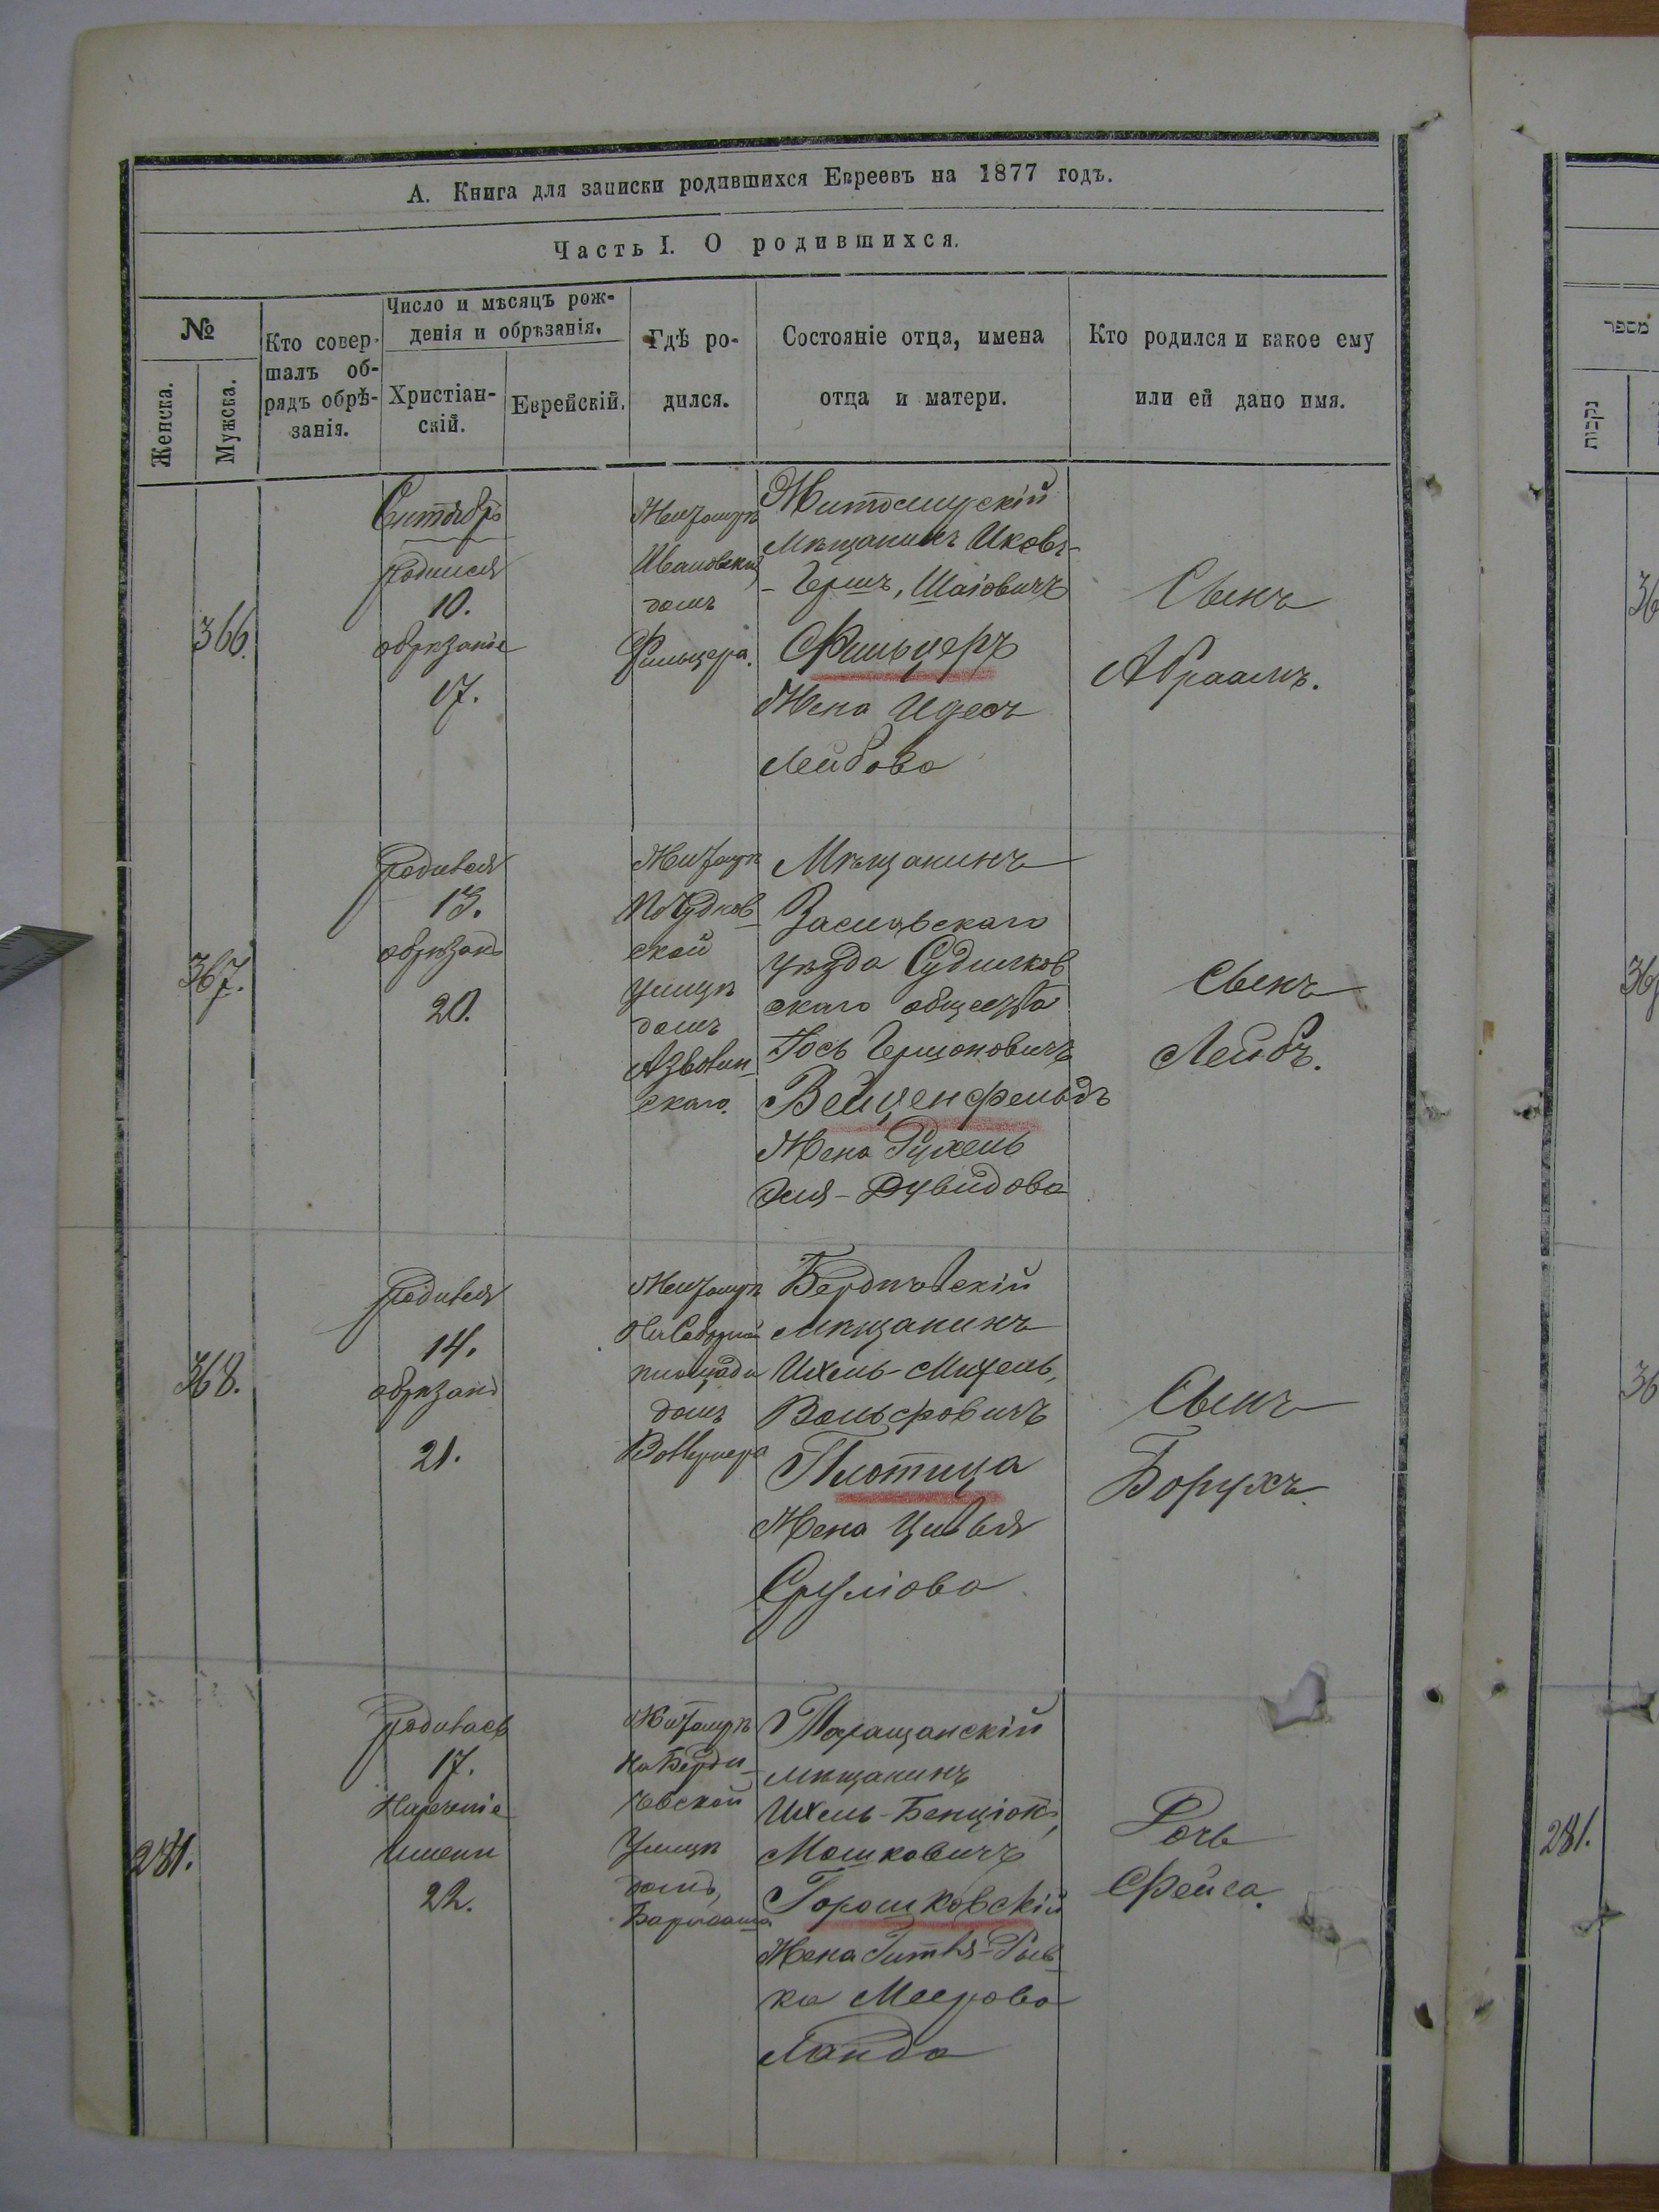 А. Книга для записки родившихся Евреевъ на 1877 годъ.
Часть I. О родившихся.
№
Женска.
Мужска.
Кто совер-
шалъ об-
рядъ обрѣ-
занія.
Число и мѣсяцъ рож-
денія и обрѣзанія.
Христіан-
скій.
Еврейскій.
Гдѣ ро-
дился.
Состояніе отца, имена
отца и матери.
Кто родился и какое ему
или ей дано имя.
366.
Сентябрь
родился
10.
обрѣзаніе
17.
Житомирѣ
Ивановский
домъ
Фильцера.
Житомирскій
мѣщанинъ Иковъ-
-Гершъ, Шаіовичъ
Фильцеръ
Жена Идесъ
Лейбова
Сынъ
Абраамъ.
367.
родився
13.
обрѣзанъ
20.
Житомирѣ
По Чуднов
ской
улицѣ
домъ
скаго.
Мѣщанинъ
Заславскаго
уѣзда Судилков
скаго общества
Іось Гершоновичъ
Вейценфельдъ
Жена Рухель
Дувидова
Сынъ
Лейбъ.
368.
родився
14.
обрѣзанъ
21.
Житомирѣ
На Соборной
площади
домъ
Бердичевскій
мѣщанинъ
Ихель-Михель,
Вольфовичъ
Плотица
Жена Цивья
Сруліова
Сынъ
Борухъ.
281.
родилась
17.
Нареченіе
имени
22.
Житомирѣ
на Берди-
чевской
улицѣ
домъ,
Таращанскій
мѣщанинъ
Ихель-Бенціонъ,
Мошковичъ
Горошковскій
Жена Гитля-Рыв
ка Меерова
Ланда
Дочь
Фейга.
מספר
נקבות
36
36
36
281.